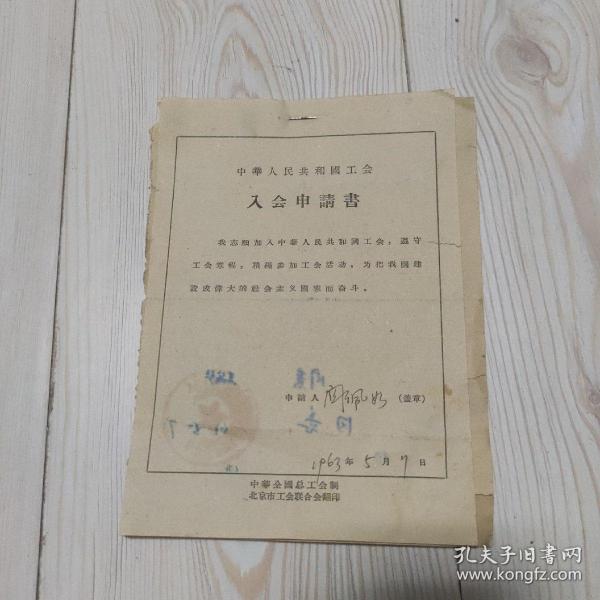 中華人民共和國工会
入会申請書
我志願加入中華人民共和國工会，遵守
工会章程，積極参加工会活动，为把我國建
設成偉大的社会主义國家而奋斗。
申請人 (盖章)
1963年5月17日
中華全國总工会制
北京市工会联合会翻印
孔夫子旧书网
www.kongfz.com